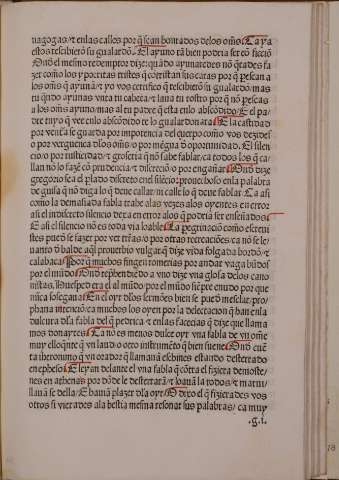 nagogas ⁊ enlas calles por q̄ sean honrados delos oēs La ya
estos rescibierō su gualardō. El ayuno tā bien podria ser cō ficciō
Onď el mesmo redemptor dize: quādo ayunaredes nō q̄rades fa
zer como los ypocritas tristes q̄ cōtristan sus caras por q̄ pescan a
los oēs q̄ ayunā ⁊ yo vos certifico q̄ rescibierō su gualardō: mas
tu q̄ndo ayunas vnta tu cabeça ⁊ laua tu rostro por q̄ nō pescas
a los oēs ayuno: mas al tu padre q̄ esta enlo abscōdido El pa
dre tuyo q̄ vee enlo abscōdido te lo gualardonara E la castidad
por ventura se guarda por impotencia del cuerpo como vos dezides
o por verguença dlos oēs o por mēgua ď oportunidad. El silen
cio por rusticidad ⁊ groseria q̄ nō sabe fablar / ca todos los q̄ ca
llan nō lo fazē cō prudencia ⁊ discreciō o por engañar Onď dize
gregorio sea el plado discreto en el silēcio: prouechoso enla palabra
de guisa q̄ nō diga lo q̄ deue callar / ni calle lo q̄ deue fablar La asi
como la demasiada fabla trahe alas vezes alos oyentes en error
asi el indiscreto silencio dexa en error alos q̄ podria ser enseñados
E asi el silencio nō es toda via loable La peginaciō como escreui
stes pued̄ se fazer por ver tr̄ras / o por otras recreaciones ca nō se le
uantō ď balde aq̄l prouerbio vulgar q̄ dize vida folgada bordō ⁊
calabaça Por q̄ muchos fingen romerias por andar vagabūdos
por el mūdo Onď rep̄hendiēdo a vno dize vna glosa delos cano
nistas. Huesped eras al mūdo / por el mūdo siēpre errado por que
nūca sosegaras En el oyr dlos sermōes bien se pued̄ mesclar pro
phana intenciō ca muchos los oyen por la delectacion q̄ han enla
dulcura dsla fabla del q̄ predica ⁊ enlas facecias q̄ dize que llam a
mos donayres La nō es menos dulce oyr vna fabla de vn ome
muy elloquēte q̄ vn laud o otro instrumēto q̄ bien suene Onď cuē
ta iheronimo q̄ vn orador q̄ llamauā eschines estando desterrado
en epheso E leyan delante el vna fabla q̄ cōtra el fiziera demoste
nes en athenas por dōde le desterrarā ⁊ loauā la todos ⁊ maraui
llauā se della / E hauiā plazer dla oyr E dixo el q̄ fizierades vos
otros si vierades ala bestia mesma resonar sus palabras / ca muy
.g.i.